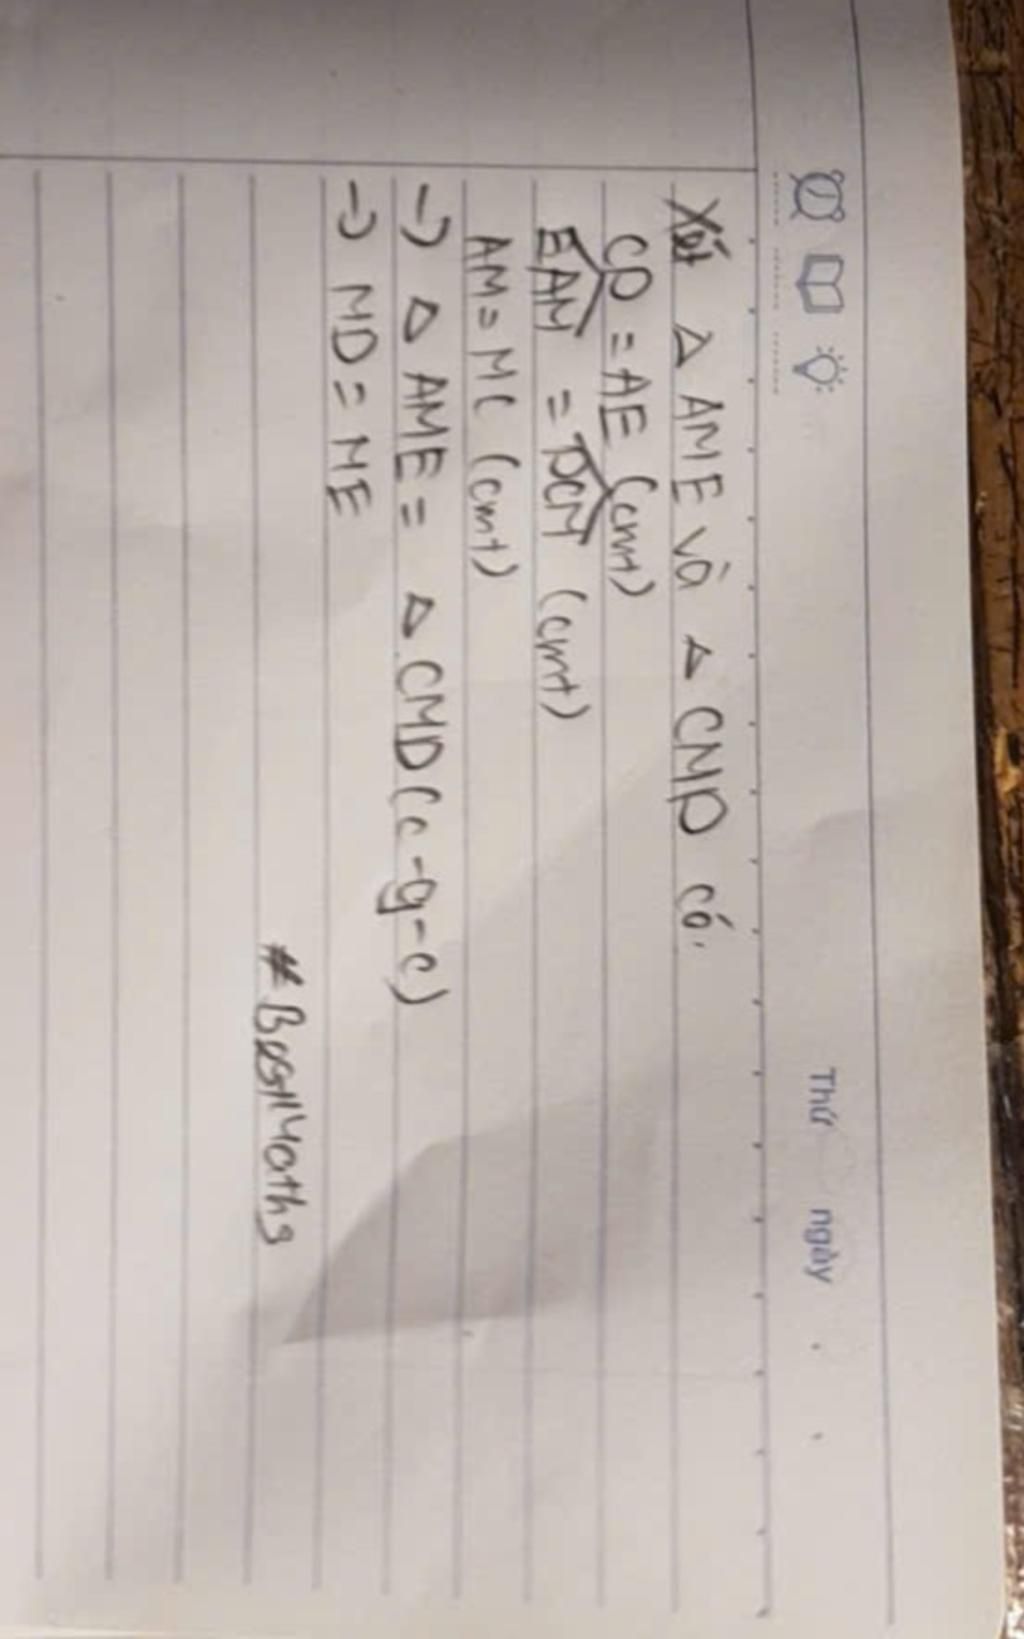 Thứ ngày
Xét Δ AME và Δ CMD có.
CD = AE (cmt)
EAM = DCM (cmt)
AM = MC (cmt)
→ Δ AME = Δ CMD (c-g-c)
→ MD = ME
#BestMaths